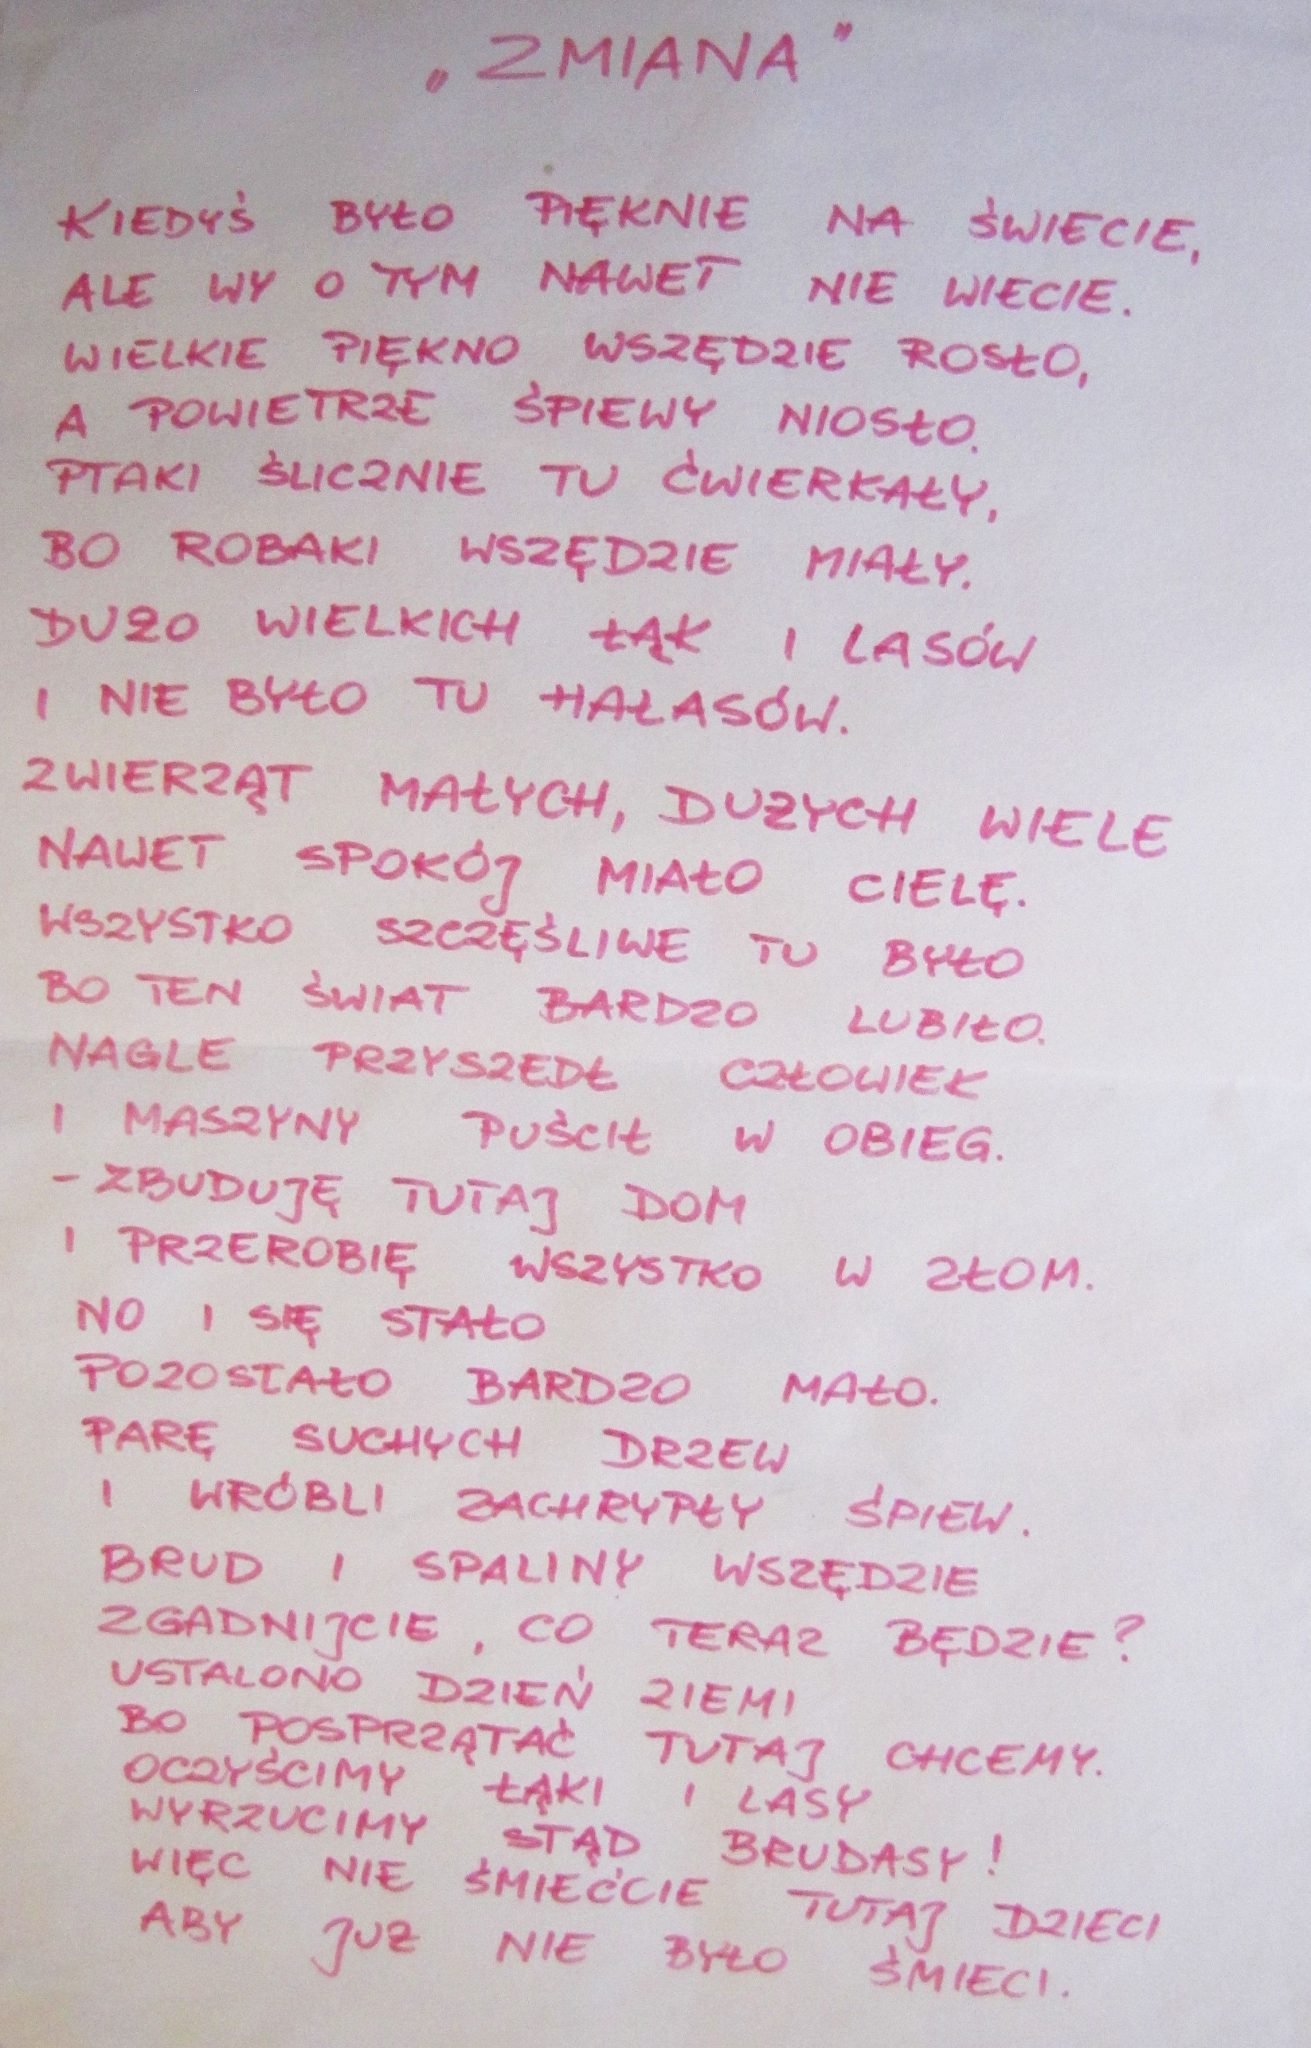 „ZMIANA"
KIEDYŚ BYŁO PIĘKNIE NA ŚWIECIE,
ALE WY O TYM NAWET NIE WIECIE.
WIELKIE PIĘKNO WSZĘDZIE ROSŁO,
A POWIETRZE ŚPIEWY NIOSŁO.
PTAKI ŚLICZNIE TU ĆWIERKAŁY,
BO ROBAKI WSZĘDZIE MIAŁY.
DUŻO WIELKICH ŁĄK I LASÓW
I NIE BYŁO TU HAŁASÓW.
ZWIERZĄT MAŁYCH, DUŻYCH WIELE
NAWET SPOKÓJ MIAŁO CIELĘ.
WSZYSTKO SZCZĘŚLIWE TU BYŁO
BO TEN ŚWIAT BARDZO LUBIŁO.
NAGLE PRZYSZEDŁ CZŁOWIEK
I MASZYNY PUŚCIŁ W OBIEG.
- ZBUDUJĘ TUTAJ DOM
I PRZEROBIĘ WSZYSTKO W ZŁOM.
NO I SIĘ STAŁO
POZOSTAŁO BARDZO MAŁO.
PARĘ SUCHYCH DRZEW
I WRÓBLI ZACHRYPŁY ŚPIEW.
BRUD I SPALINY WSZĘDZIE
ZGADNIJCIE, CO TERAZ BĘDZIE?
USTALONO DZIEŃ ZIEMI
BO POSPRZĄTAĆ TUTAJ CHCEMY.
OCZYŚCIMY ŁĄKI I LASY
WYRZUCIMY STĄD BRUDASY!
WIĘC NIE ŚMIEĆCIE TUTAJ DZIECI
ABY JUŻ NIE BYŁO ŚMIECI.